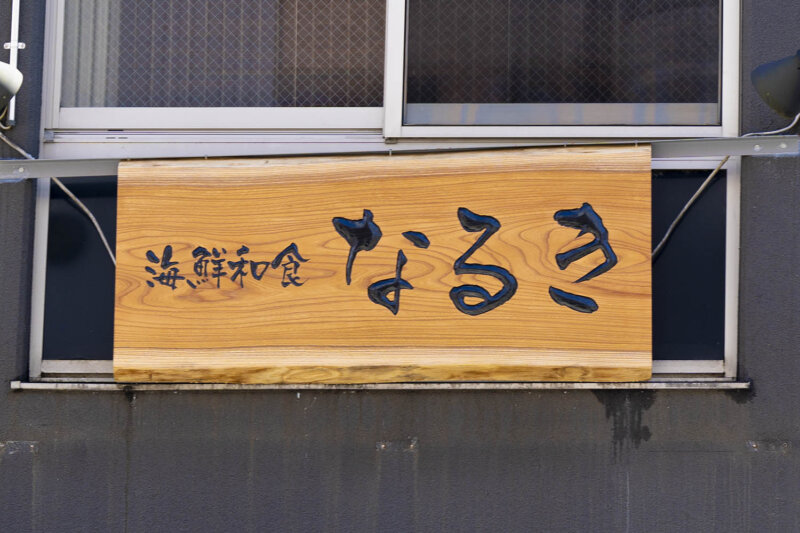 海鮮和食 なるき